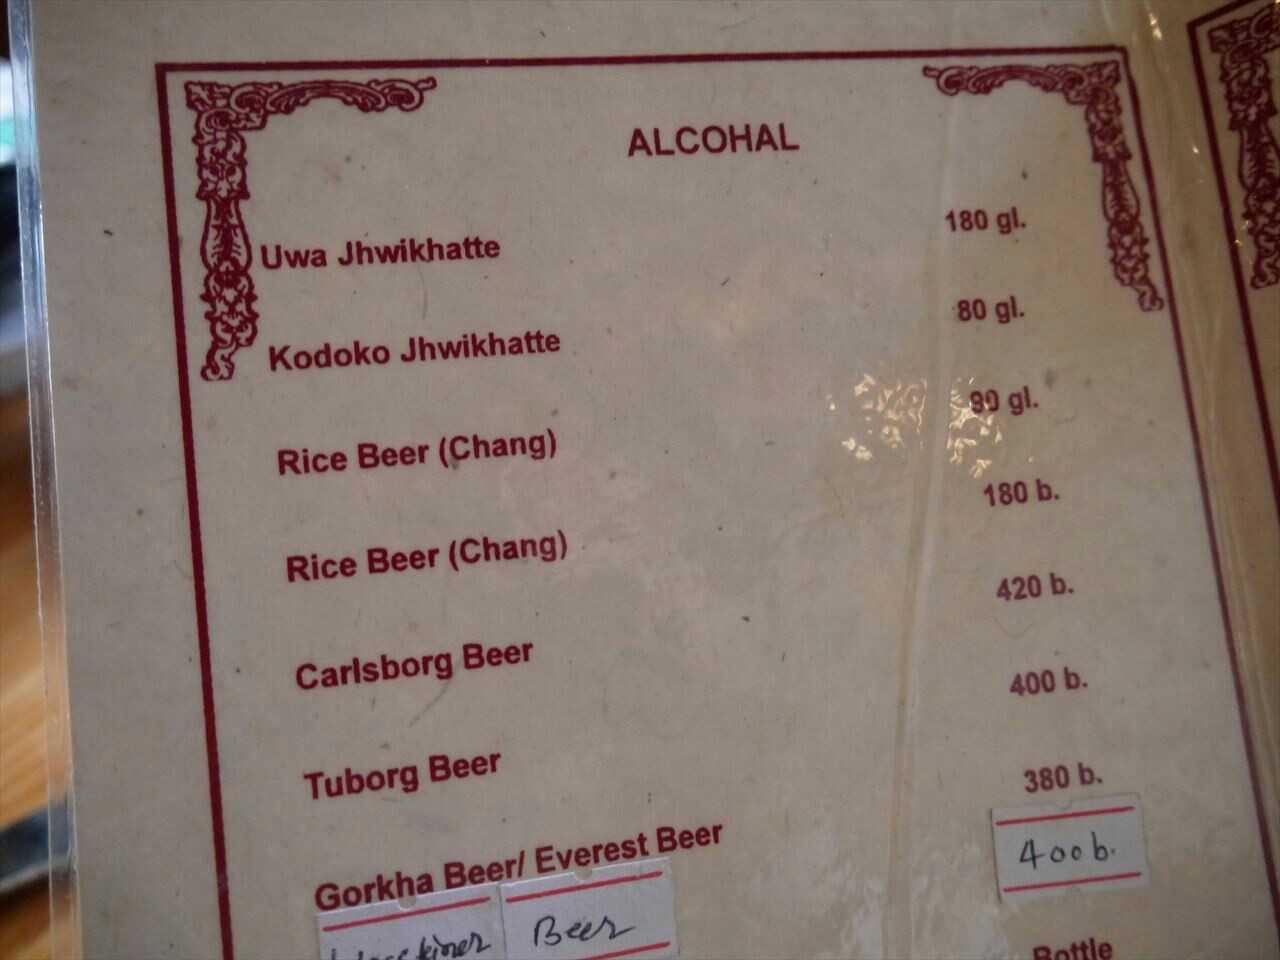 ALCOHAL
Uwa Jhwikhatte 180 gl.
Kodoko Jhwikhatte 80 gl.
Rice Beer (Chang) gl.
Rice Beer (Chang) 180 b.
Carlsborg Beer 420 b.
Tuborg Beer 400 b.
Gorkha Beer/ Everest Beer 380 b.
Beer 400b.
Bottle